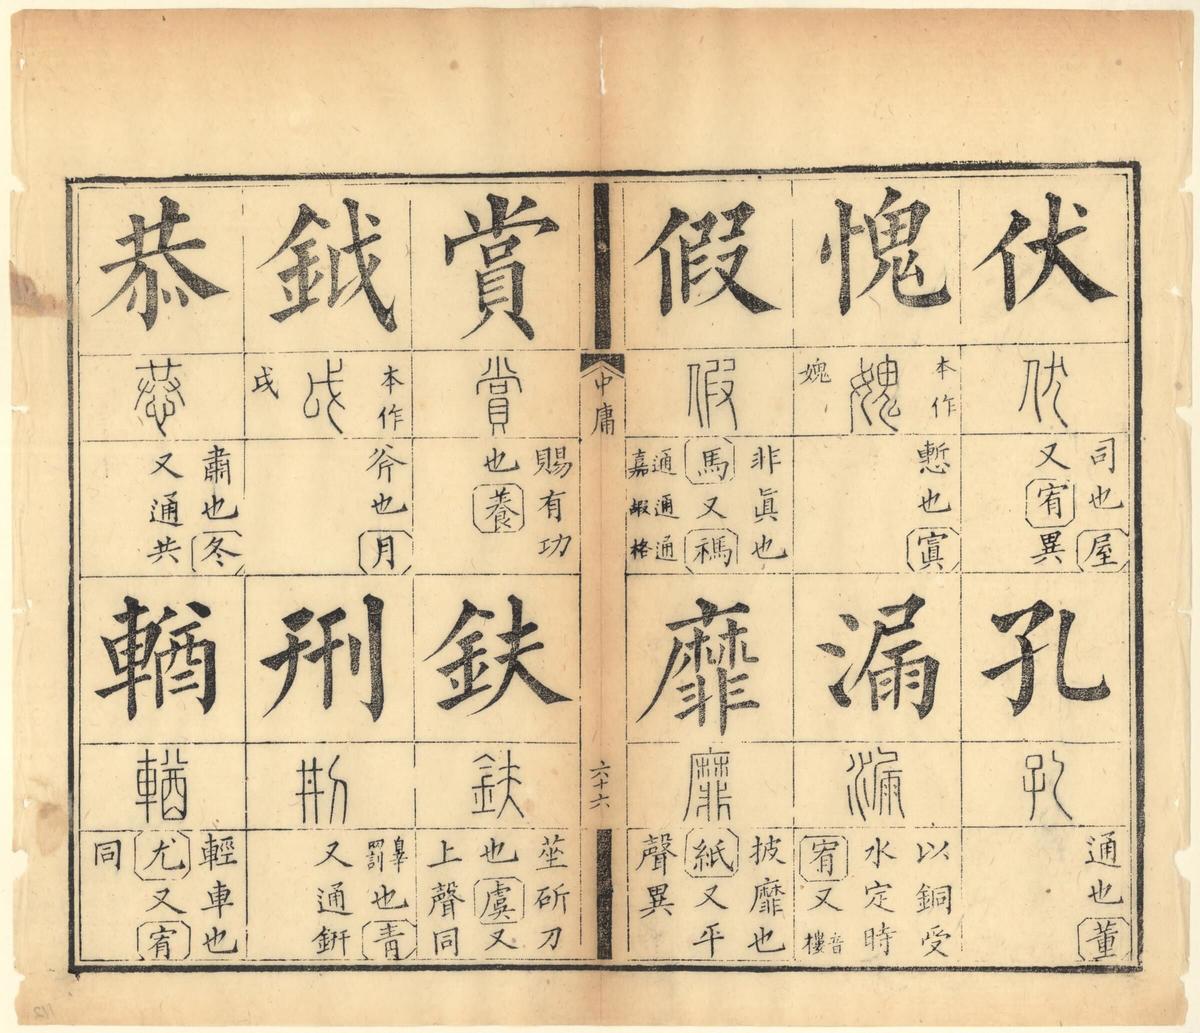 伏
伏
司也屋
又宥異
孔
孔
通也董
愧
本作
媿
媿
慙也寘
漏
漏
以銅受
水定時
宥又音樓
假
假
非眞也
馬又禡
通嘉通嘏通格
靡
靡
披靡也
紙又平
聲異
中庸
六十六
賞
賞
賜有功
也養
鈇
鈇
莝斫刀
也虞又
上聲同
鉞
本作
戉
戉
斧也月
刑
㓝
辠罰也青
又通鈃
恭
恭
肅也冬
又通共
輶
輶
輕車也
尤又宥
同